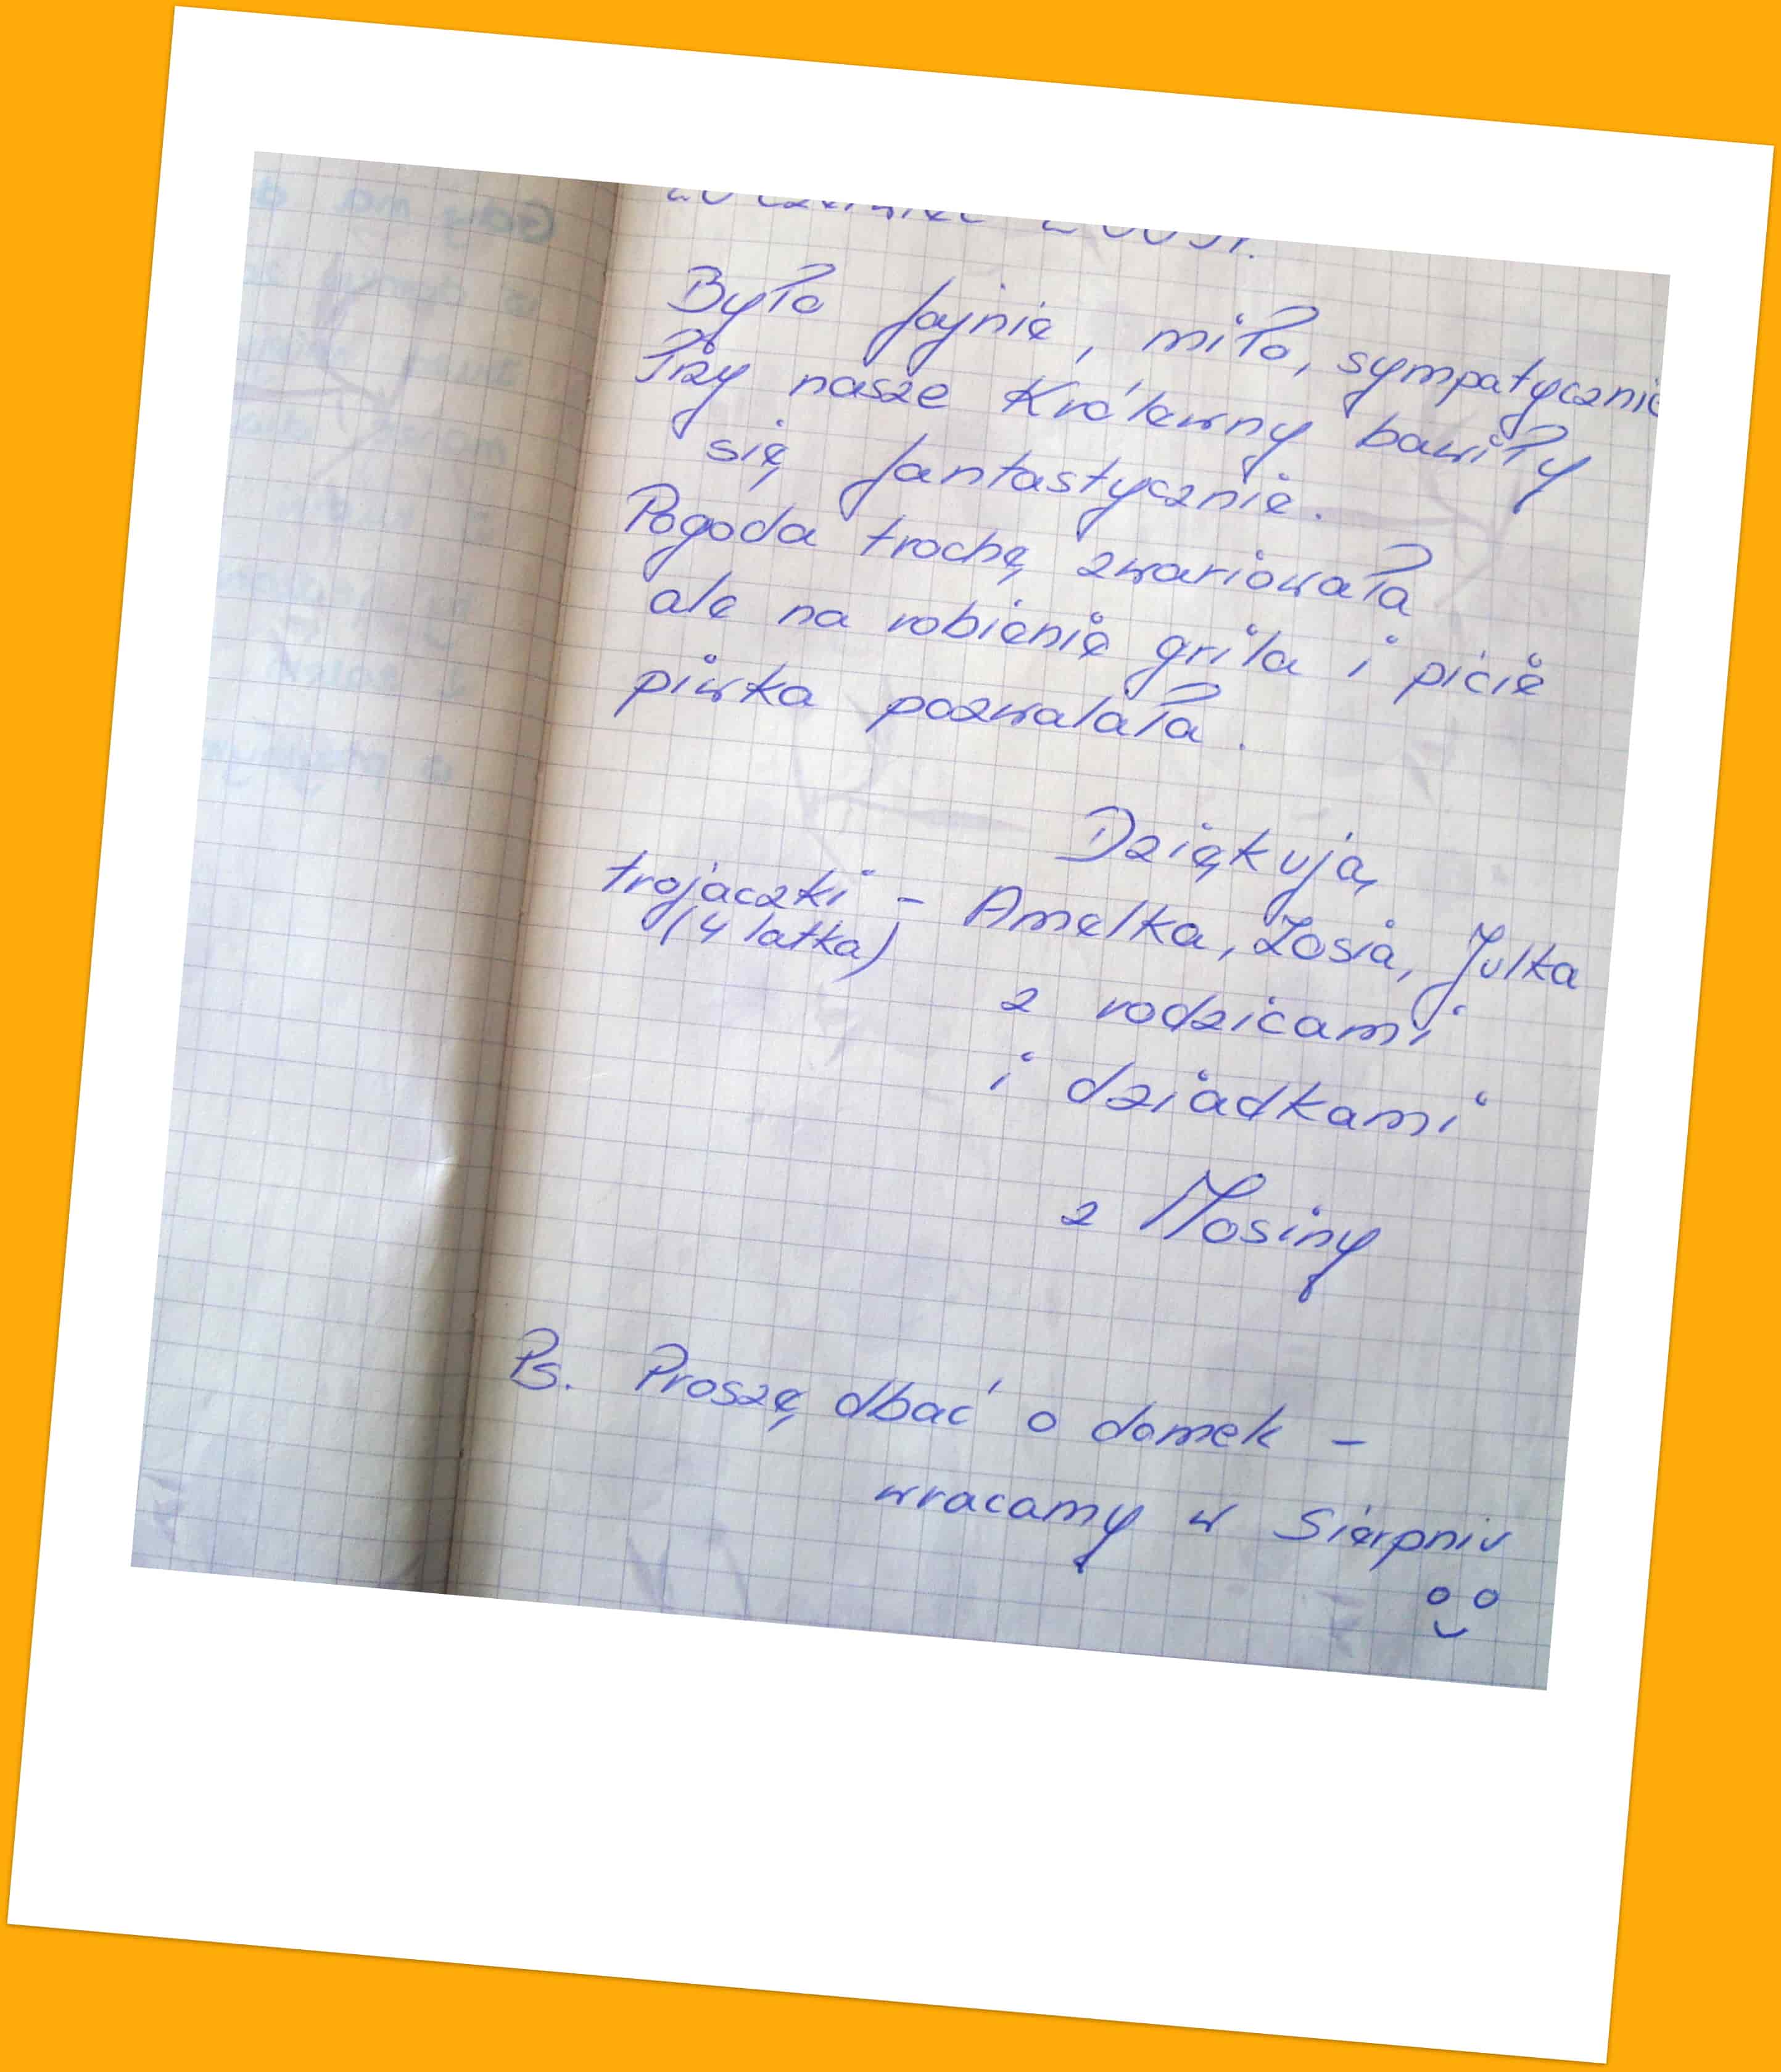 Było fajnie, miło, sympatycznie
Trzy nasze Królewny bawiły
się fantastycznie.
Pogoda trochę zwariowała
ale na robienie grila i picie
piwka pozwalała.
Dziękują
trojaczki - Amelka, Zosia, Julka
(4 latka)
z rodzicami
i dziadkami
z Mosiny
Ps. Proszę dbać o domek -
wracamy w Sierpniu